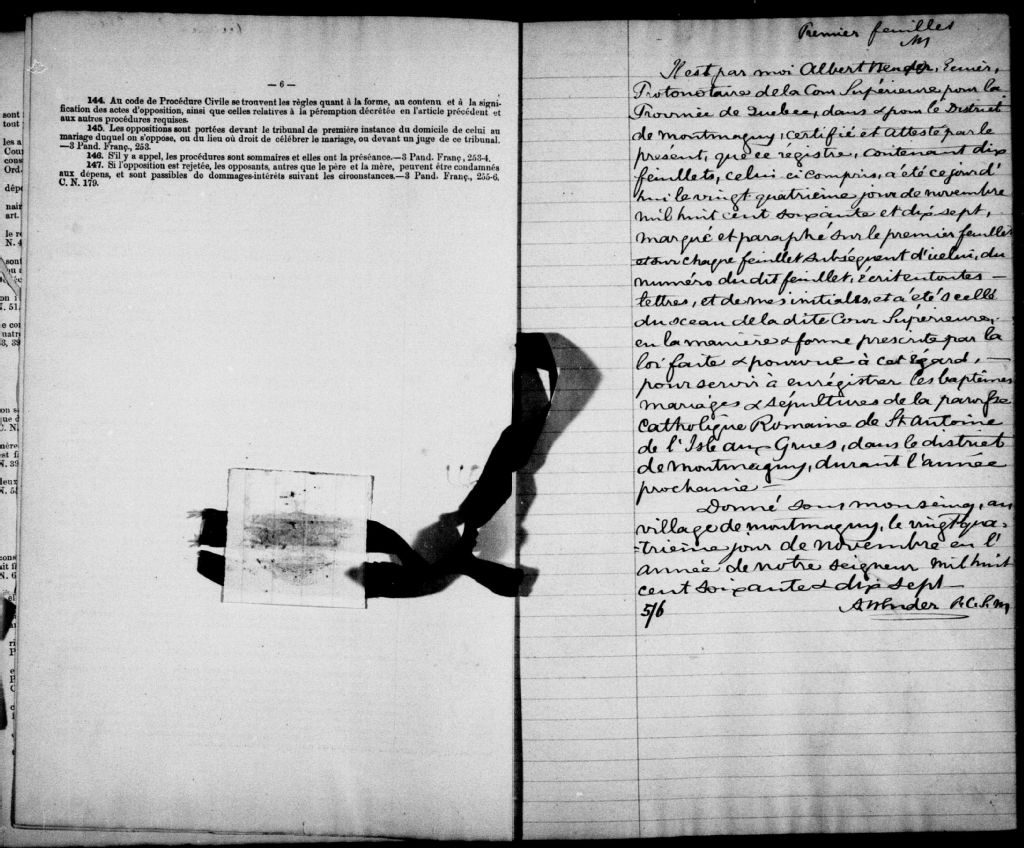 — 6 —
144. Au code de Procédure Civile se trouvent les règles quant à la forme, au contenu et à la signi-
fication des actes d'opposition, ainsi que celles relatives à la péremption décrétée en l'article précédent et
aux autres procédures requises.
145. Les oppositions sont portées devant le tribunal de première instance du domicile de celui au
mariage duquel on s'oppose, ou du lieu où droit de célébrer le mariage, ou devant un juge de ce tribunal.
—3 Pand. Franç., 253.
146. S'il y a appel, les procédures sont sommaires et elles ont la préséance.—3 Pand. Franç., 253-4.
147. Si l'opposition est rejetée, les opposants, autres que le père et la mère, peuvent être condamnés
aux dépens, et sont passibles de dommages-intérêts suivant les circonstances.—3 Pand. Franç., 255-6.
C. N. 179.
Premier feuillet
Il est par moi Albert Bender, Ecuier,
Protonotaire de la Cour Supérieure pour la
Province de Quebec, dans & pour le District
de Montmagny, certifié et Attesté par le
présent, que ce régistre, contenant dix
feuillets, celui ci compris, a été ce jour d'
hui le vingt quatrième jour de novembre
mil huit cent soixante et dix sept,
marqué et paraphé sur le premier feuillet
et sur chaque feuillet subséquent d'icelui, du
numéro du dit feuillet, écrit en toutes —
lettres, et de mes initiales, et a été scellé
du sceau de la dite Cour Supérieure,
en la manière & forme prescrite par la
loi faite & pourvue à cet Egard, —
pour servir à enrégistrer les baptêmes
mariages & sépultures de la paroisse
catholique Romaine de St Antoine
de l'Isle aux Grues, dans le district
de Montmagny, durant l'année
prochaine —
Donné sous mon seing, au
village de Montmagny, le vingt qua-
-trième jour de Novembre en l'
année de notre seigneur mil huit
cent soixante & dix sept —
5/6 A Bender P.C.S.M